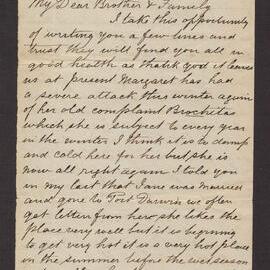 My Dear Brother & Family
I take this opportunity
of writing you a few lines and
trust they will find you all in
good health as thank god it leaves
us at present Margaret has had
a severe attack this winter again
of her old complaint Brochitas
which she is subject to every year
in the winter I think it is to damp
and cold here for her but she is
now all right again I told you
in my last that Jane was married
and gone to Port Darwin we often
get letters from her she likes the
place very well but it is begining
to get very hot it is a very hot place
in the summer before the wet season